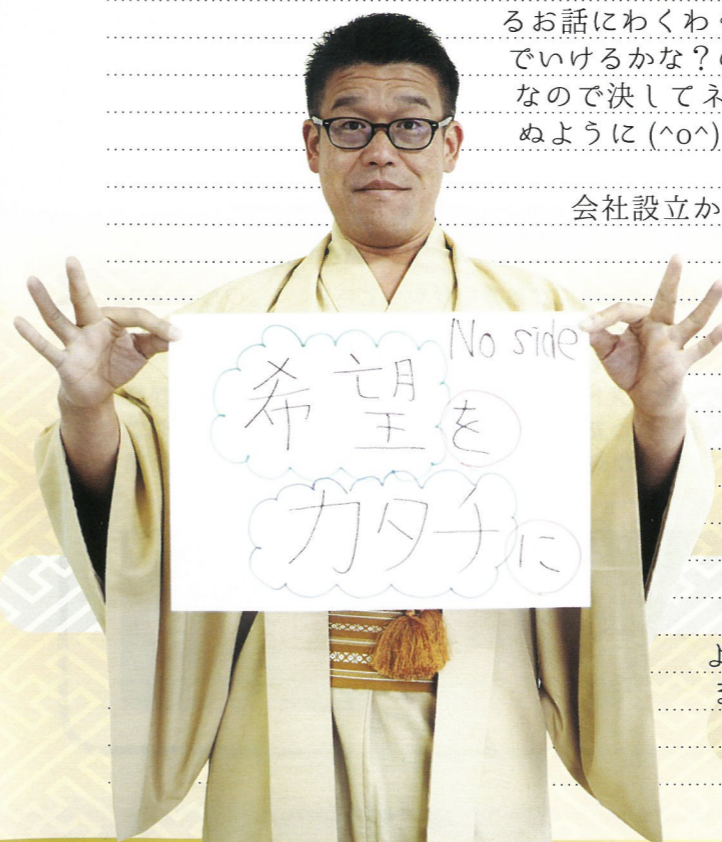 るお話にわくわ
でいけるかな?
なので決してネ
ぬように (^o^)
会社設立か
No side
希望を
カタチに
よ